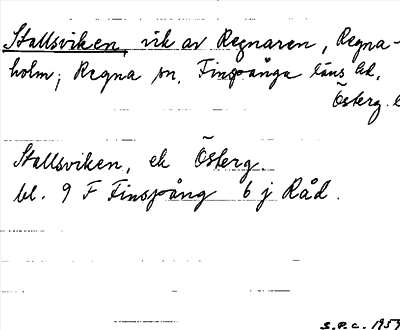 Stallsviken, vik av Regnaren, Regna-
holm; Regna sn. Finspånga läns hd,
Österg. l
Stallsviken, ek Österg.
bl. 9 F Finspång 6 j Råd.
S.P.C. 1959